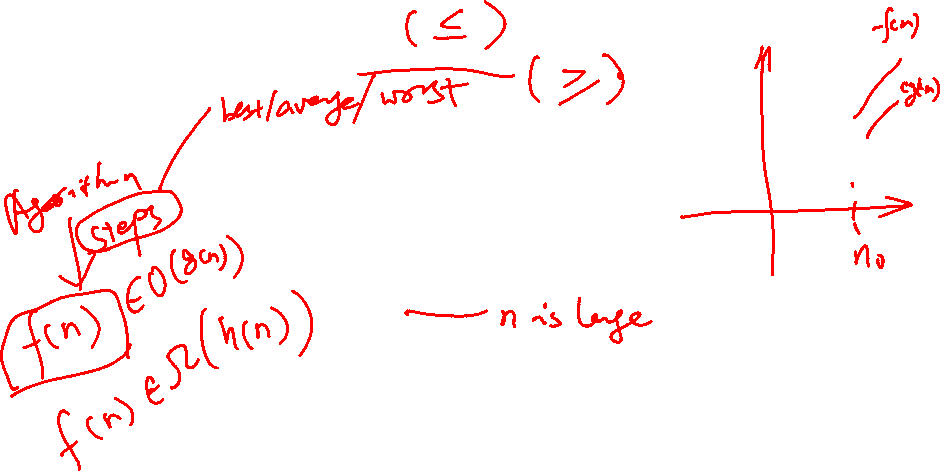 (≤)
best/average/worst (≥)
Algorithm
steps
f(n) ∈ O(g(n))
f(n) ∈ Ω(h(n))
n is large
f(n)
cg(n)
n₀